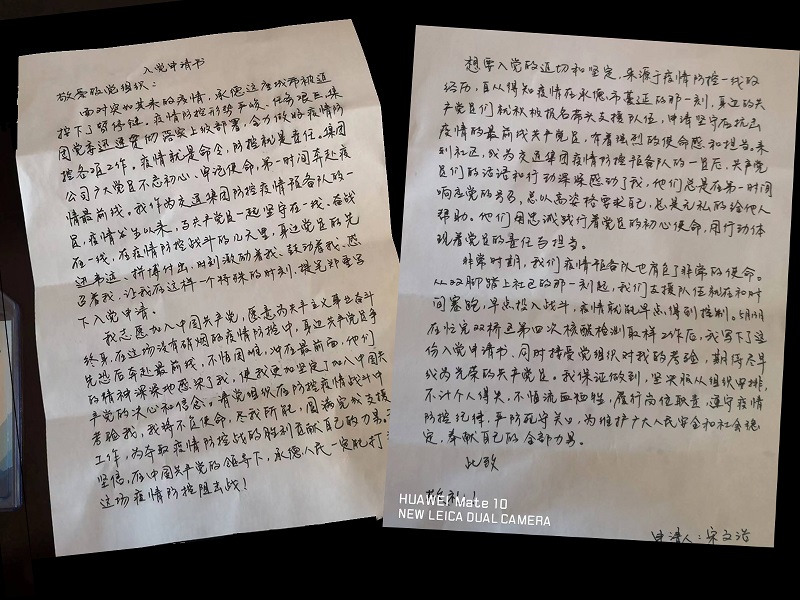 入党申请书
敬爱的党组织：
面对突如其来的疫情，承德这座城市被迫
按下了暂停键。疫情防控形势严峻、任务艰巨，集
团党委迅速贯彻落实上级部署，全力做好疫情防
控各项工作。疫情就是命令，防控就是责任。集团
公司广大党员不忘初心、牢记使命，第一时间奔赴疫
情最前线。我作为交通集团防控疫情预备队的一
员，疫情发生以来，与共产党员一起坚守在一线、奋战
在一线，在疫情防控战斗的几天里，身边党员的先
进事迹、拼搏付出，时刻激励着我、鼓动着我、感
写着我，让我在这样一个特殊的时刻，提笔郑重写
下入党申请。
我志愿加入中国共产党，愿意为共产主义事业奋斗
终身。在这场没有硝烟的疫情防控中，身边共产党员争
先恐后奔赴最前线，不惧困难，冲在最前面，他们
的精神深深地感染了我，使我更加坚定了加入中国共
产党的决心和信念。请党组织在防控疫情战斗中
考验我，我将不负使命，尽我所能，圆满完成支援
工作，为夺取疫情防控战的胜利贡献自己的力量。
坚信，在中国共产党的领导下，承德人民一定能打
这场疫情防控阻击战！
想要入党的迫切和坚定，来源于疫情防控一线的
经历，自从得知疫情在承德市蔓延的那一刻，身边的共
产党员们就积极报名奔头支援队伍，申请坚守在抗击
疫情的最前线共产党员，有着强烈的使命感和担当。来
到社区，成为交通集团疫情防控预备队的一员后，共产党
员们的话语和行动深深感动了我，他们总是在第一时间
响应党的号召，总以高姿格要求自己，总是无私的给他人
帮助。他们用忠诚践行着党员的初心使命，用行动体
现着党员的责任与担当。
非常时期，我们疫情预备队也肩负了非常的使命。
从双脚踏上社区的那一刻起，我们支援队伍就在和时
间塞跑，早点投入战斗，疫情就能早点得到控制。5月1日
在忙完双桥区第四次核酸检测取样工作后，我写下了这
份入党申请书，同时接受党组织对我的考验，期待尽早
成为光荣的共产党员。我保证做到，坚决服从组织安排，
不计个人得失，不惜流血牺牲，履行岗位职责，遵守疫情
防控纪律，严防死守关口，为维护广大人民安全和社会稳
定，奉献自己的全部力量。
此致
敬礼！
申请人：宋文浩
HUAWEI Mate 10
NEW LEICA DUAL CAMERA